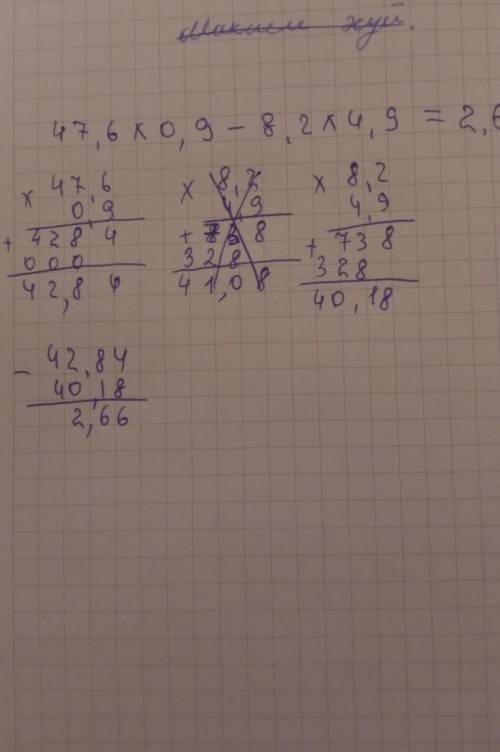 Максим хуй.
47,6 × 0,9 − 8,2 × 4,9 = 2,6
× 47,6
0,9
+ 428 4
000
42,8 4
× 8,2
4,9
+ 738
328
41,08
× 8,2
4,9
+ 738
328
40,18
− 42,84
40,18
2,66